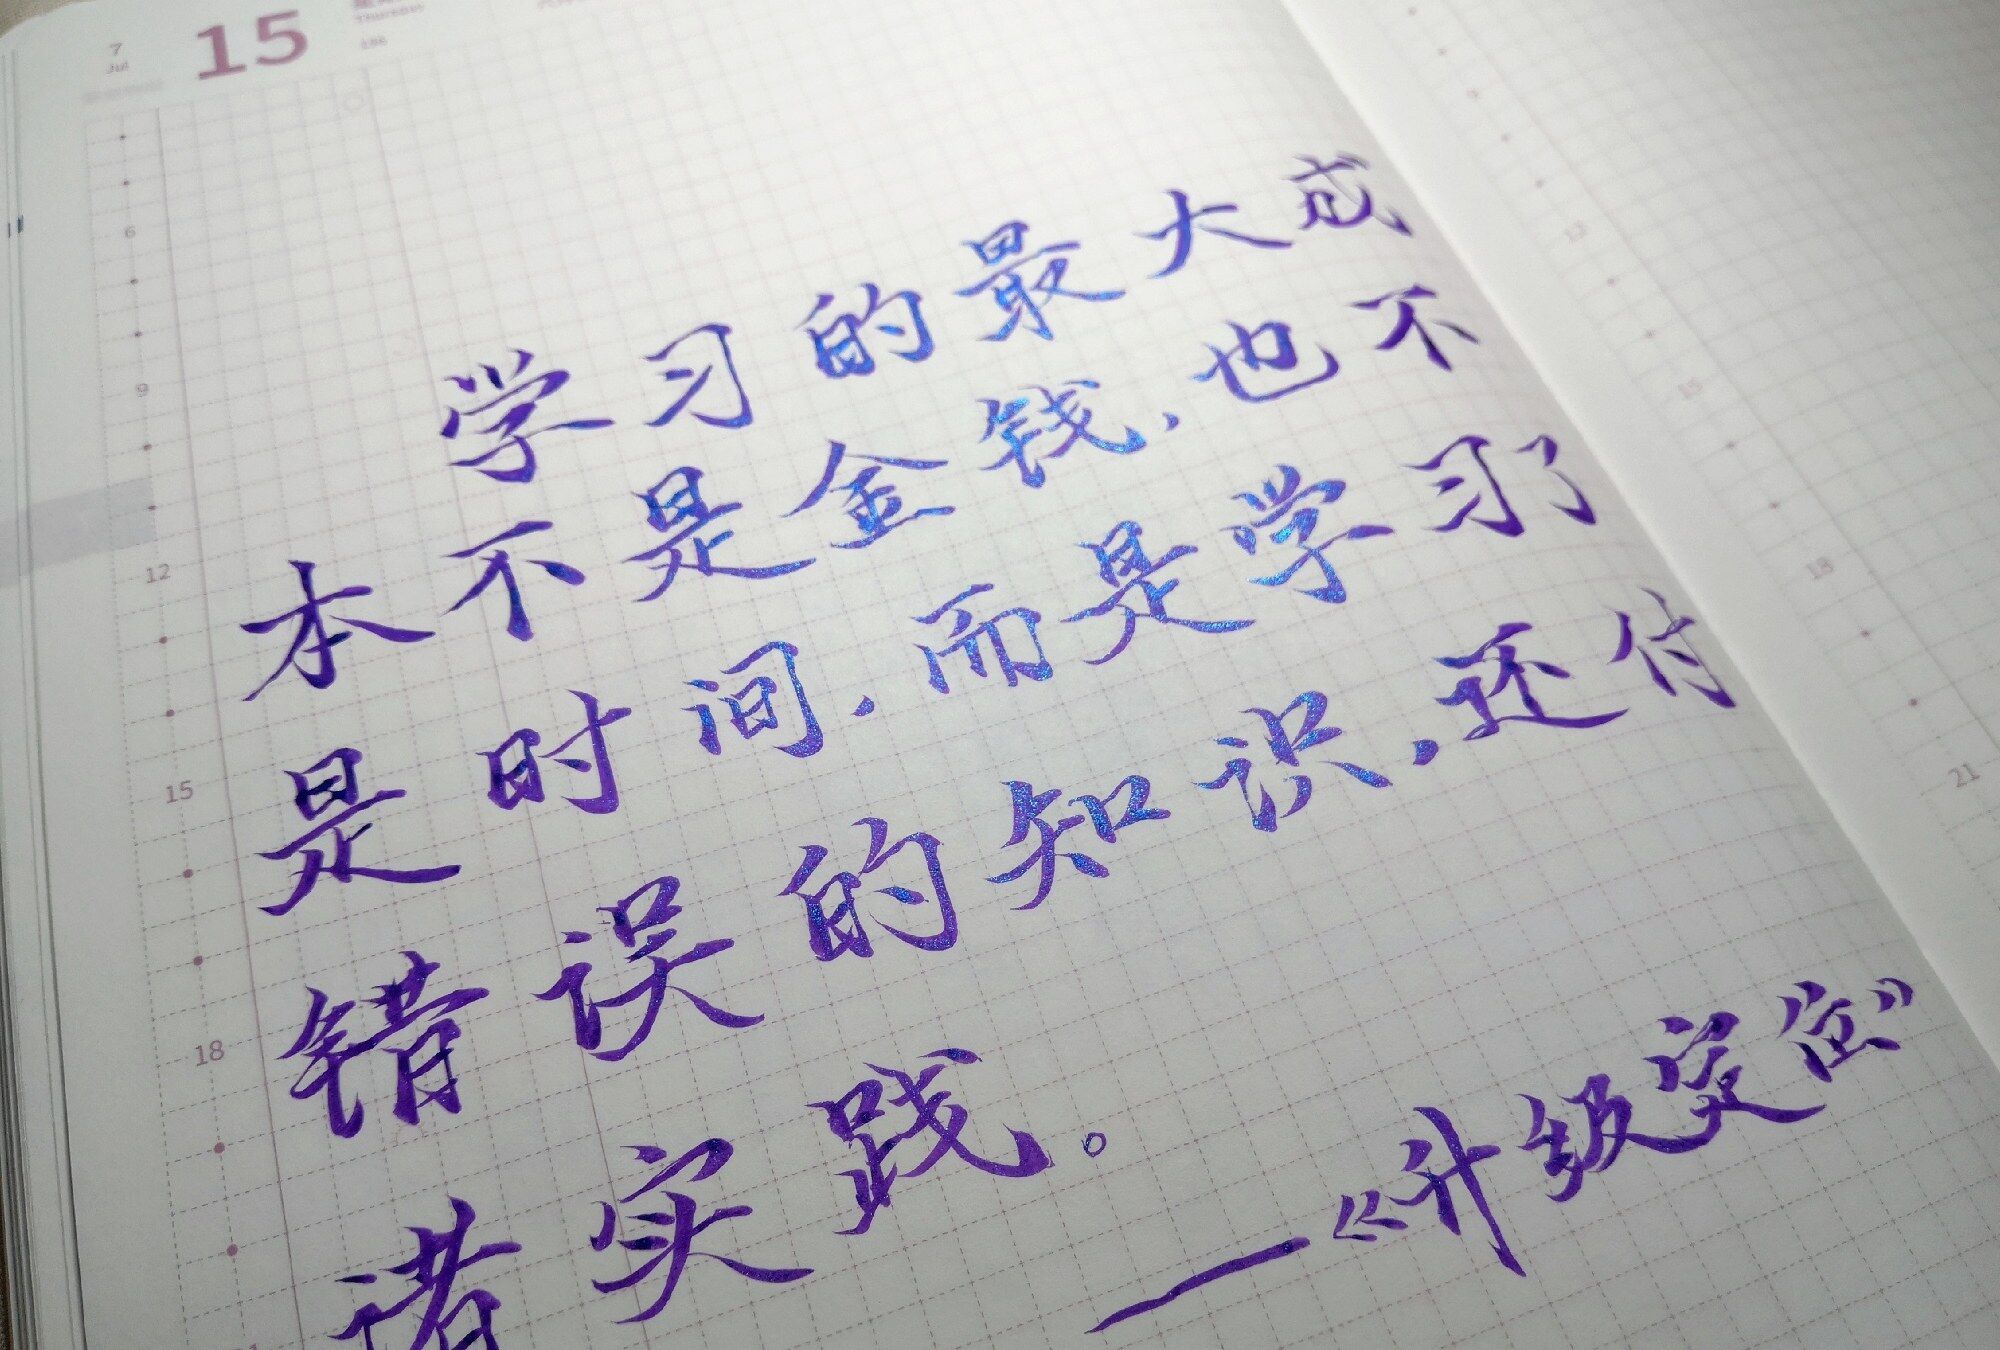 7
Jul
15
学习的最大成
本不是金钱，也不
是时间，而是学习了
错误的知识，还付
诸实践。
—《升级突围》
6
9
12
15
18
12
15
18
21